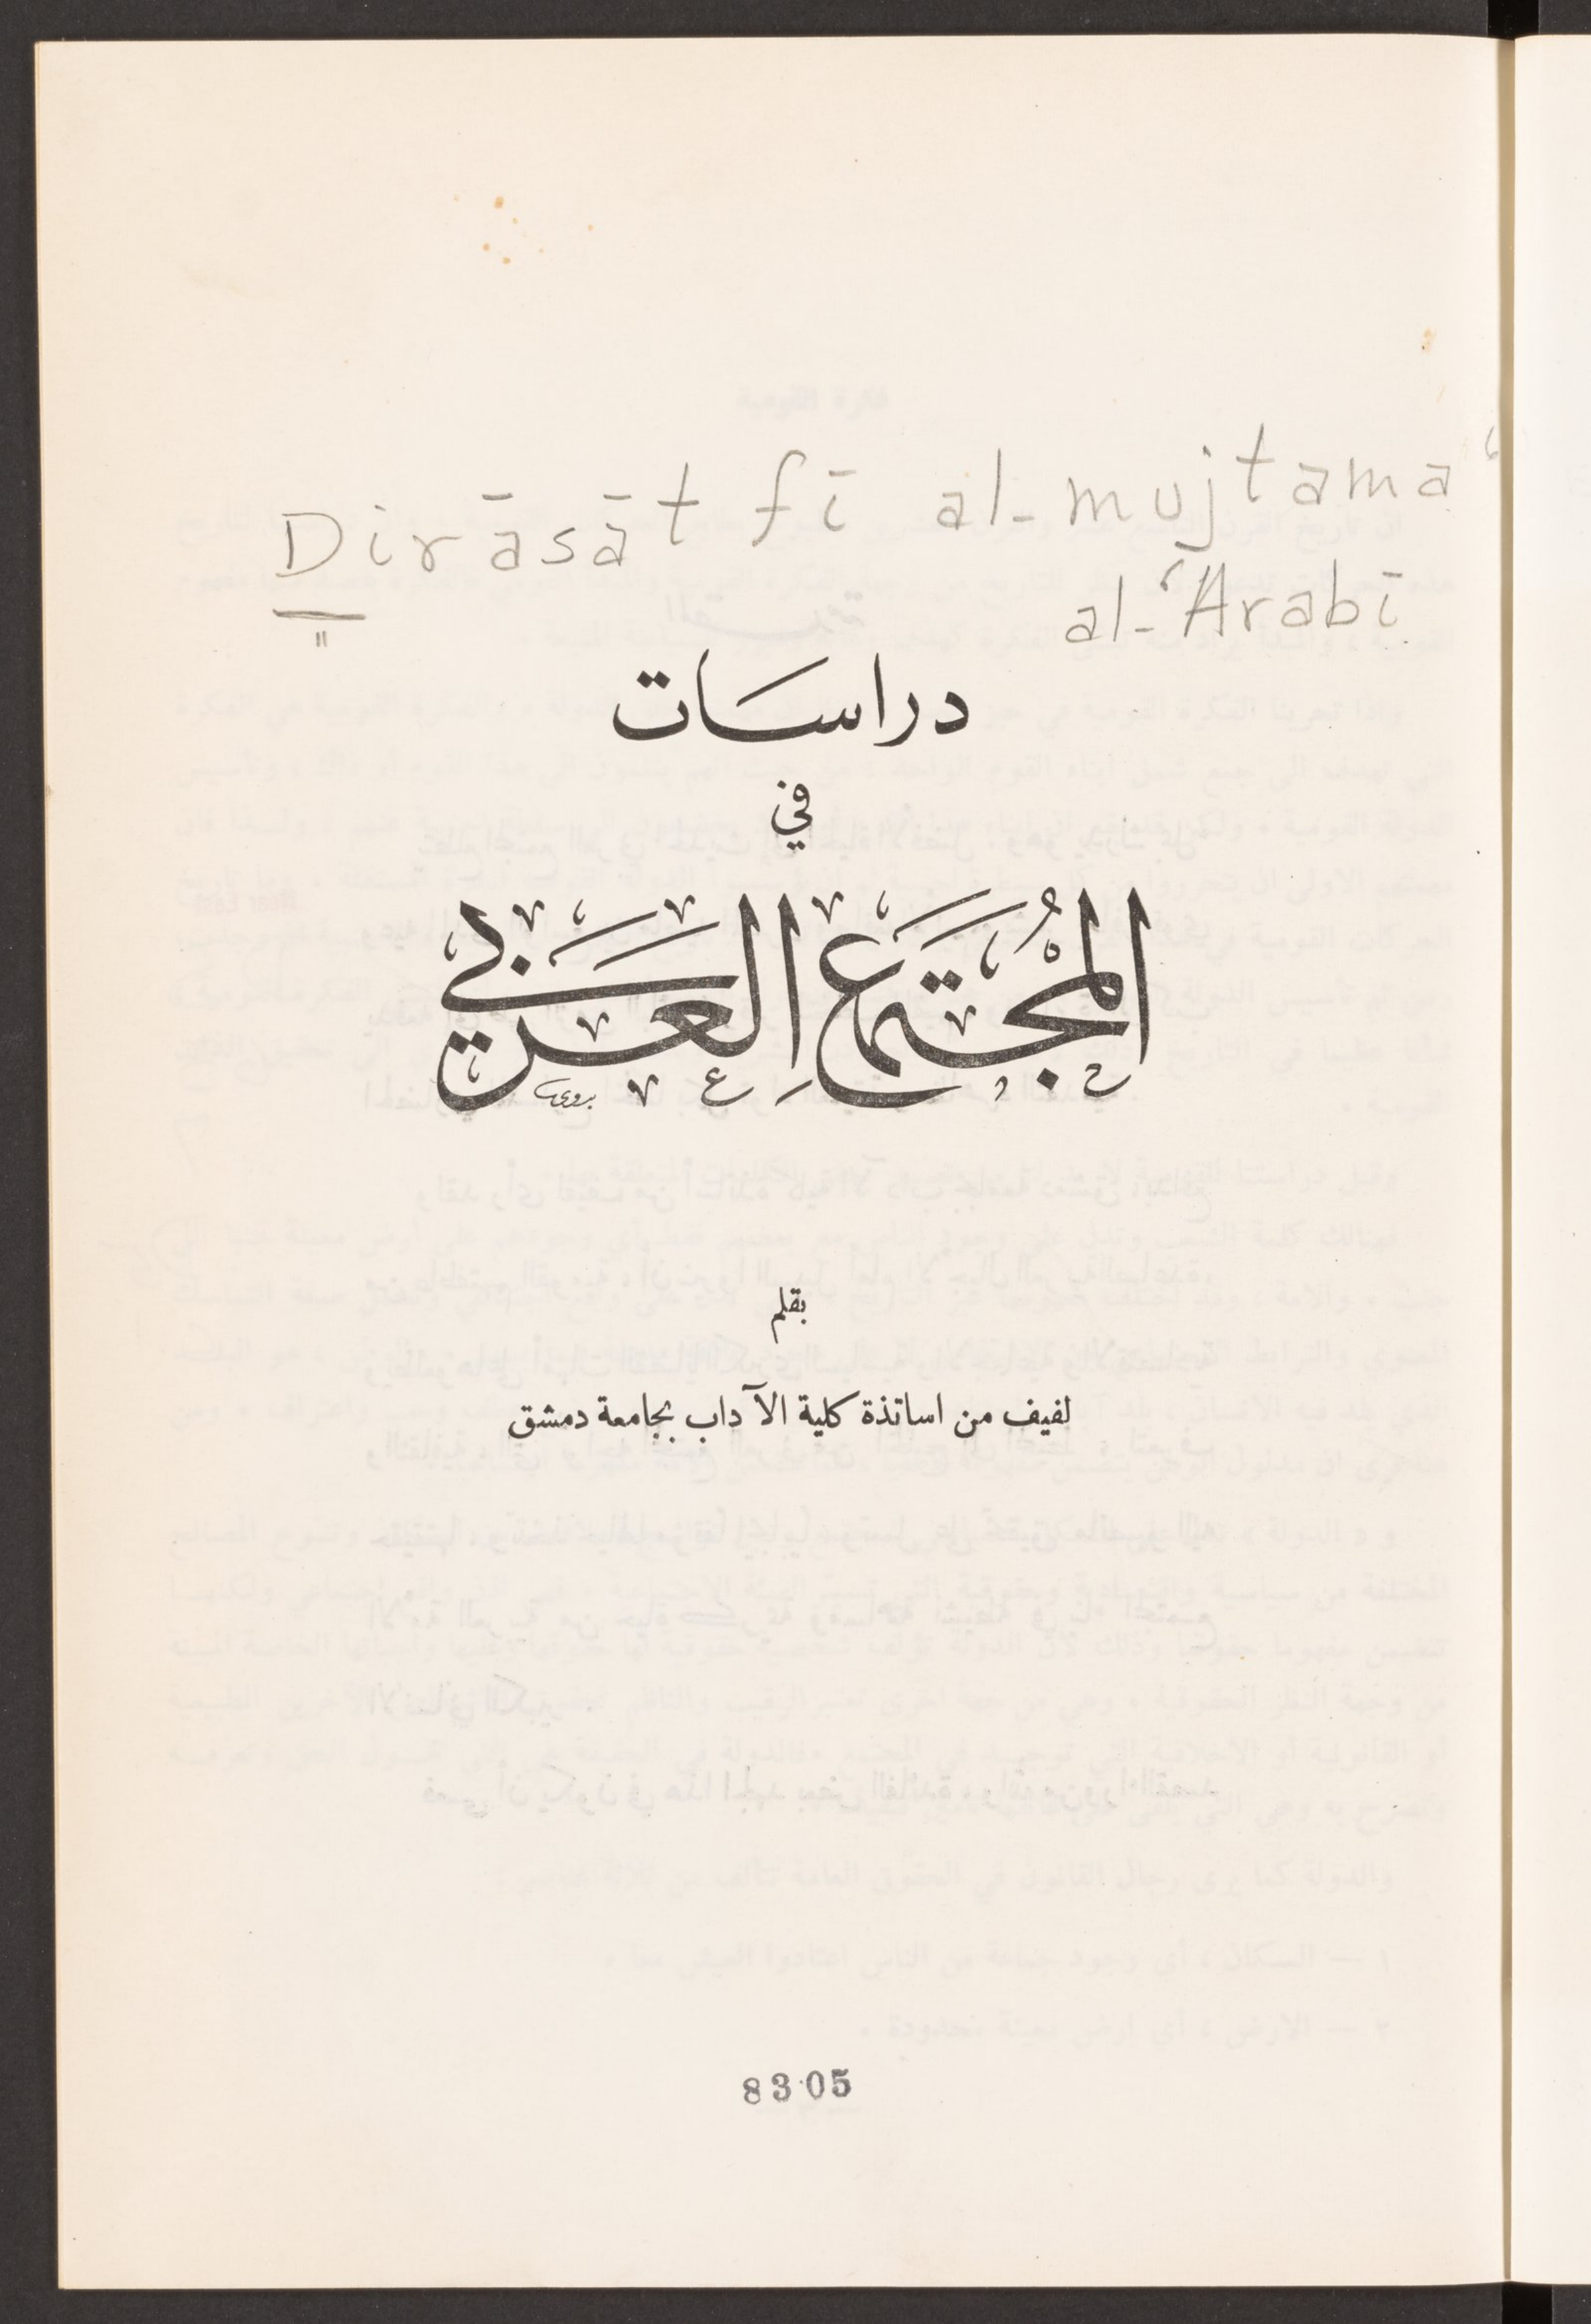 Dirāsāt fī al-mujtamaʿ
al-ʿArabī
دراسات
في
المُجْتَمَع العَرَبي
بدوي
بقلم
لفيف من اساتذة كلية الآداب بجامعة دمشق
8305